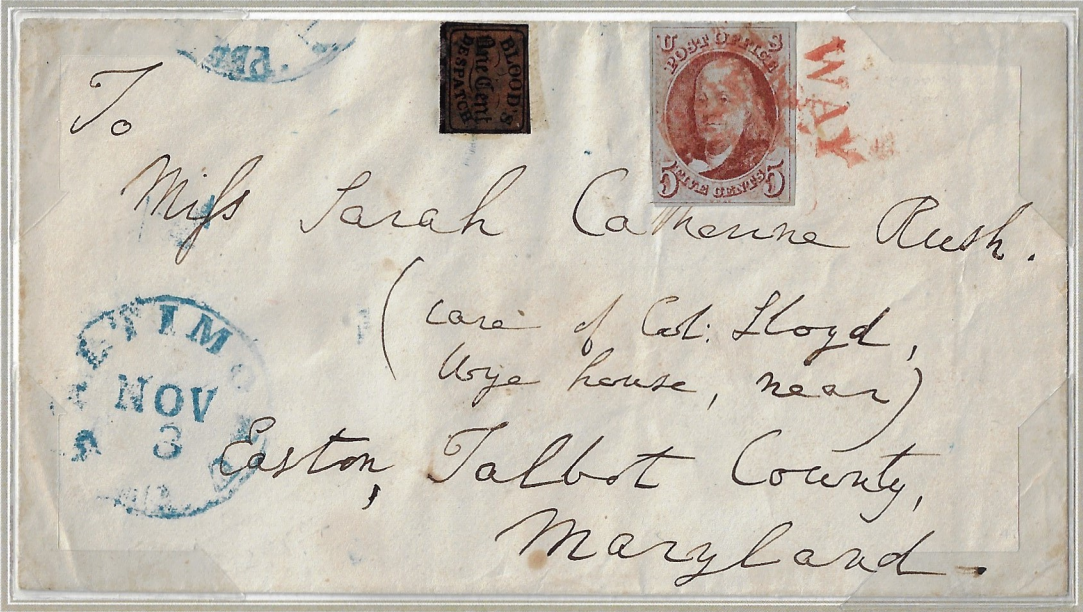 BLOOD'S
One Cent
DESPATCH
U S
POST OFFICE
5 FIVE CENTS 5
WAY
To
Miss Sarah Catherine Rush.
(care of Col: Lloyd,
Wye house, near)
Easton, Talbot County,
Maryland.
NOV
3